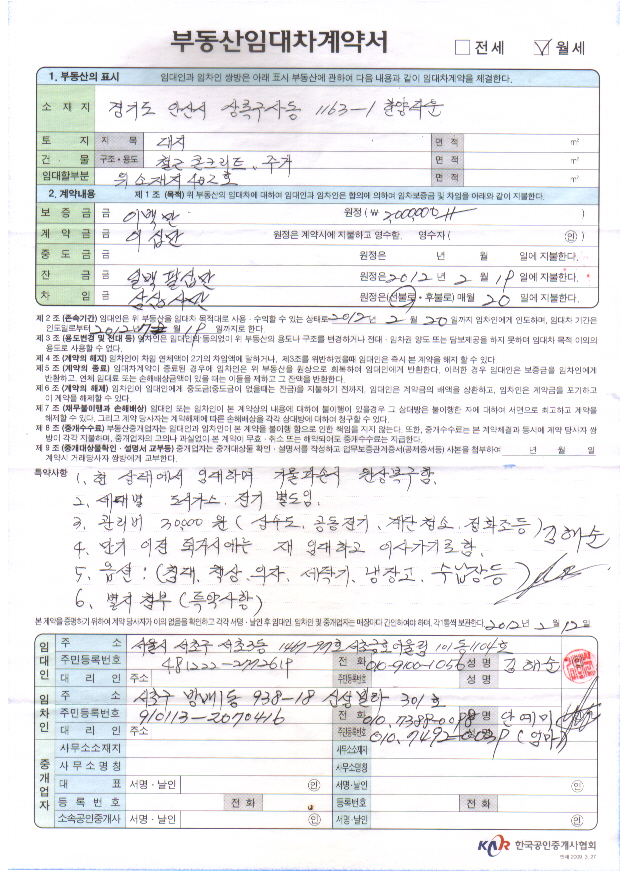 부동산임대차계약서 □ 전세 ☑ 월세
1. 부동산의 표시 임대인과 임차인 쌍방은 아래 표시 부동산에 관하여 다음 내용과 같이 임대차계약을 체결한다.
소 재 지 경기도 안산시 상록구 사동 1163-1 한양
토 지 지 목 대지 면 적 ㎡
건 물 구조·용도 철근콘크리트, 주거 면 적 ㎡
임대할부분 위 소재지 402호 면 적 ㎡
2. 계약내용 제 1 조 (목적) 위 부동산의 임대차에 대하여 임대인과 임차인은 합의에 의하여 임차보증금 및 차임을 아래와 같이 지불한다.
보 증 금 금 이백만 원정 (₩ 2,000,000 )
계 약 금 금 이십만 원정은 계약시에 지불하고 영수함. 영수자 ( 인 )
중 도 금 금 원정은 년 월 일에 지불한다.
잔 금 금 일백팔십만 원정은 2012년 2월 19일에 지불한다.
차 임 금 삼십 원정은 (선불로·후불로) 매월 20일에 지불한다.
제 2 조 (존속기간) 임대인은 위 부동산을 임대차 목적대로 사용·수익할 수 있는 상태로 2012년 2월 20일까지 임차인에게 인도하며, 임대차 기간은
인도일로부터 2012년 월 19일까지로 한다.
제 3 조 (용도변경 및 전대 등) 임차인은 임대인의 동의없이 위 부동산의 용도나 구조를 변경하거나 전대·임차권 양도 또는 담보제공을 하지 못하며 임대차 목적 이외의
용도로 사용할 수 없다.
제 4 조 (계약의 해지) 임차인이 차임 연체액이 2기의 차임액에 달하거나, 제3조를 위반하였을때 임대인은 즉시 본 계약을 해지 할 수 있다.
제 5 조 (계약의 종료) 임대차계약이 종료된 경우에 임차인은 위 부동산을 원상으로 회복하여 임대인에게 반환한다. 이러한 경우 임대인은 보증금을 임차인에게
반환하고, 연체 임대료 또는 손해배상금액이 있을 때는 이들을 제하고 그 잔액을 반환한다.
제 6 조 (계약의 해제) 임차인이 임대인에게 중도금(중도금이 없을때는 잔금)을 지불하기 전까지, 임대인은 계약금의 배액을 상환하고, 임차인은 계약금을 포기하고
이 계약을 해제할 수 있다.
제 7 조 (채무불이행과 손해배상) 임대인 또는 임차인이 본 계약상의 내용에 대하여 불이행이 있을경우 그 상대방은 불이행한 자에 대하여 서면으로 최고하고 계약을
해제할 수 있다. 그리고 계약 당사자는 계약해제에 따른 손해배상을 각각 상대방에 대하여 청구할 수 있다.
제 8 조 (중개수수료) 부동산중개업자는 임대인과 임차인이 본 계약을 불이행 함으로 인한 책임을 지지 않는다. 또한, 중개수수료는 본 계약체결과 동시에 계약 당사자 쌍
방이 각각 지불하며, 중개업자의 고의나 과실없이 본 계약이 무효·취소 또는 해약되어도 중개수수료는 지급한다.
제 9 조 (중개대상물확인·설명서 교부등) 중개업자는 중개대상물 확인·설명서를 작성하고 업무보증관계증서(공제증서등) 사본을 첨부하여 년 월 일
계약시 거래당사자 쌍방에게 교부한다.
특약사항
1. 현 상태에서 임대하며 기물파손시 원상복구함.
2. 세대별 도시가스, 전기 별도임.
3. 관리비 30,000원 (상수도, 공동전기, 계단청소, 정화조등) 김해순
4. 만기 이전 퇴거시에는 재 임대하고 이사가기로 함.
5. 옵션 : (침대, 책상, 의자, 세탁기, 냉장고, 수납장등)
6. 별지 첨부 (특약사항)
본 계약을 증명하기 위하여 계약 당사자가 이의 없음을 확인하고 각각 서명·날인 후 임대인, 임차인 및 중개업자는 매장마다 간인하여야 하며, 각 1통씩 보관한다. 2012년 2월 12일
임대인
주 소 서울시 서초구 서초3동 서초금호어울림 101동 1104호
주민등록번호 481222-2772619 전 화 010-9100-1056 성 명 김해순
대 리 인 주소 주민등록번호 성 명
임차인
주 소 서초구 방배1동 938-18 신삼빌라 301호
주민등록번호 910113-2070416 전 화 010.7388-0088 성 명 안예미
대 리 인 주소 주민등록번호 010.7492-0039 (엄마)
중개업자
사무소소재지 사무소소재지
사무소명칭 사무소명칭
대 표 서명·날인 인 서명·날인 인
등 록 번 호 전 화 등록번호 전 화
소속공인중개사 서명·날인 인 서명·날인 인
KAR 한국공인중개사협회